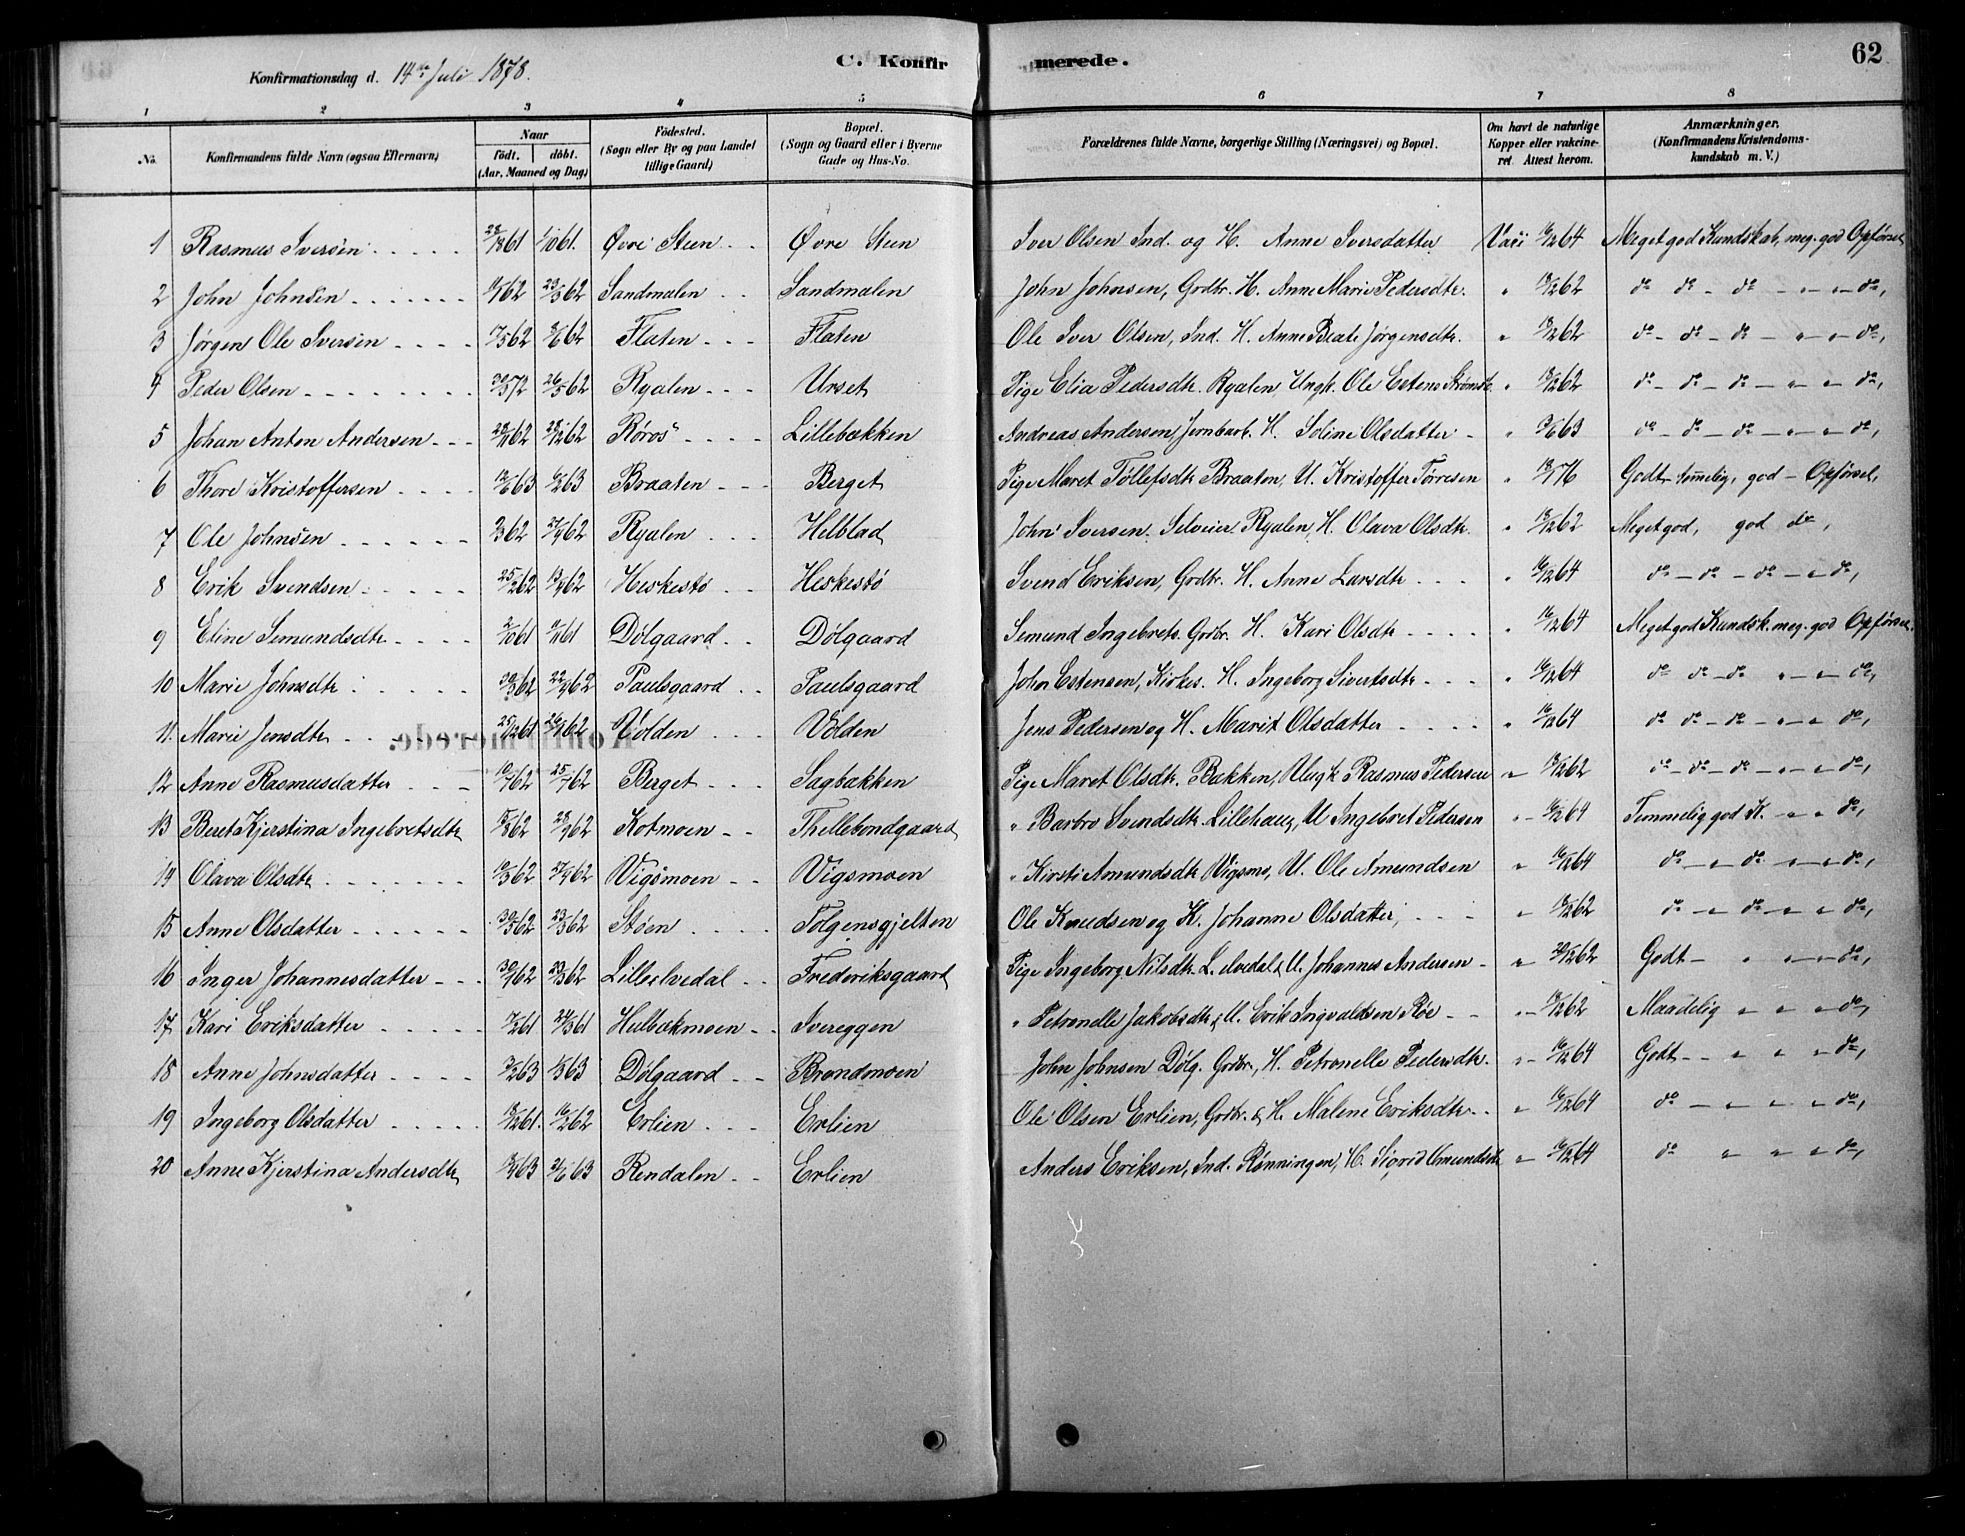 Konfirmationsdag d. 14de Juli 1878.
C. Konfir
merede.
62
1 2 3 4 5 6 7 8
No. Konfirmandens fulde Navn (ogsaa Efternavn) Naar födt. döbt. (Aar, Maaned og Dag) Födested. (Sogn eller By og paa Landet tillige Gaard) Bopæl. (Sogn og Gaard eller i Byerne Gade og Hus-No. Forældrenes fulde Navne, borgerlige Stilling (Næringsvei) og Bopæl. Om havt de naturlige Kopper eller vakcineret. Attest herom. Anmærkninger. (Konfirmandens Kristendomskundskab m. V.)
1 Rasmus Iversen Øvre Steen Øvre Steen Iver Olsen Ind. og H. Anne Iversdatter 16/12 64 Meget god Kundskab, meg. god Opførsel
2 John Johnsen 23/3 62 Sandmalen Sandmalen John Johnsen, Grdbr. H. Anne Marie Pedersdtr. " 18/12 62 do do - do - " - " - do,
3 Jørgen Ole Iversen 7/5 62 Flaten Flaten Ole Iver Olsen, Ind. H. Anne Beate Jørgensdtr. " 18/12 62 do - do - do - " - " - do,
4 Peder Olsen 26/5 62 Ryalen Urset Pige Elia Pedersdtr. Ryalen, Ungk. Ole Estens " 18/12 62 do - do - do - " - " do,
5 Johan Anton Andersen 28/11 62 28/12 62 Røros Lillebækken Andreas Andersen, Jernbarb. H. Soline Olsdatter " do - do - do - " - " - do,
6 Thore Kristoffersen Braaten Berget Pige Maret Tøllefsdtr Braaten, U. Kristoffer Torresen " Godt - temmelig, god - Opførsel,
7 Ole Johnsen 21/9 62 Ryalen Helblad John Iversen. Selveier Ryalen, H. Olava Olsdtr. " 18/12 62 Meget god, god do,
8 Erik Svendsen Heskestø Heskestø Svend Eriksen, Grdbr. H. Anne Larsdtr " 16/12 64 do - do - do - " do,
9 Eline Semundsdtr Dølgaard Dølgaard Semund Ingebrets. Grdbr. H. Kari Olsdtr " 16/12 64 Meget god Kundsk. meg. god Opførsel.
10 Marie Johnsdtr 30/3 62 Paulsgaard Paulsgaard John Estensen, Kirkes. H. Ingeborg Sivertsdtr " 16/12 64 do do - do " - " - do,
11. Marie Jensdtr 25/12 61 Volden Volden Jens Pedersen og H. Marit Olsdatter " do do - do - " - " do,
12 Anne Rasmusdatter Berget Sagbakken Pige Maret Olsdtr. Bakken, Ungk Rasmus Pedersen " 18/12 62 do - do - do - " - " - do,
13 Beret Kjerstina Ingebretsdtr Kotmoen Thellebondgaard " Barbro Svendsdtr. Lillehaug, U Ingebret Pedersen " 16/12 64 Temmelig god K. - " " do,
14 Olava Olsdtr 27/9 62 Vigsmoen Vigsmoen " Kirsti Amundsdtr Vigsmo, U. Ole Amundsen " 16/12 64 do - " - do - " - " do,
15 Anne Olsdatter 23/3 62 Støen Folgensgjelten Ole Knudsen og H. Johanne Olsdatter, " 18/12 62 do - " - do - " " do,
16 Inger Johannesdatter Lilleelvedal Frederiksgaard Pige Ingeborg Nilsdtr. L. elvedal & U. Johannes Andersen " 20/12 62 Godt - " " - do,
17 Kari Eriksdatter 24/3 61 Hulbækmoen Ivereggen " Petronelle Jakobsdtr & U. Erik Ingvaldsen Røe " 18/12 62 Maadelig " " " do,
18 Anne Johnsdatter Dølgaard Brandmoen John Johnsen Dølg. Grdbr, H. Petronelle Pedersdtr. " 16/12 64 Godt - - " " - do,
19 Ingeborg Olsdatter 16/2 62 Erlien Erlien Ole Olsen Erlien, Grdbr. & H. Malene Eriksdtr. " 16/12 64 do - " " " do,
20 Anne Kjerstina Andersdtr Rendalen Erlien Anders Eriksen, Ind. Rønningen, H. Sigrid Amundsdtr " 16/12 64 do " " " do,